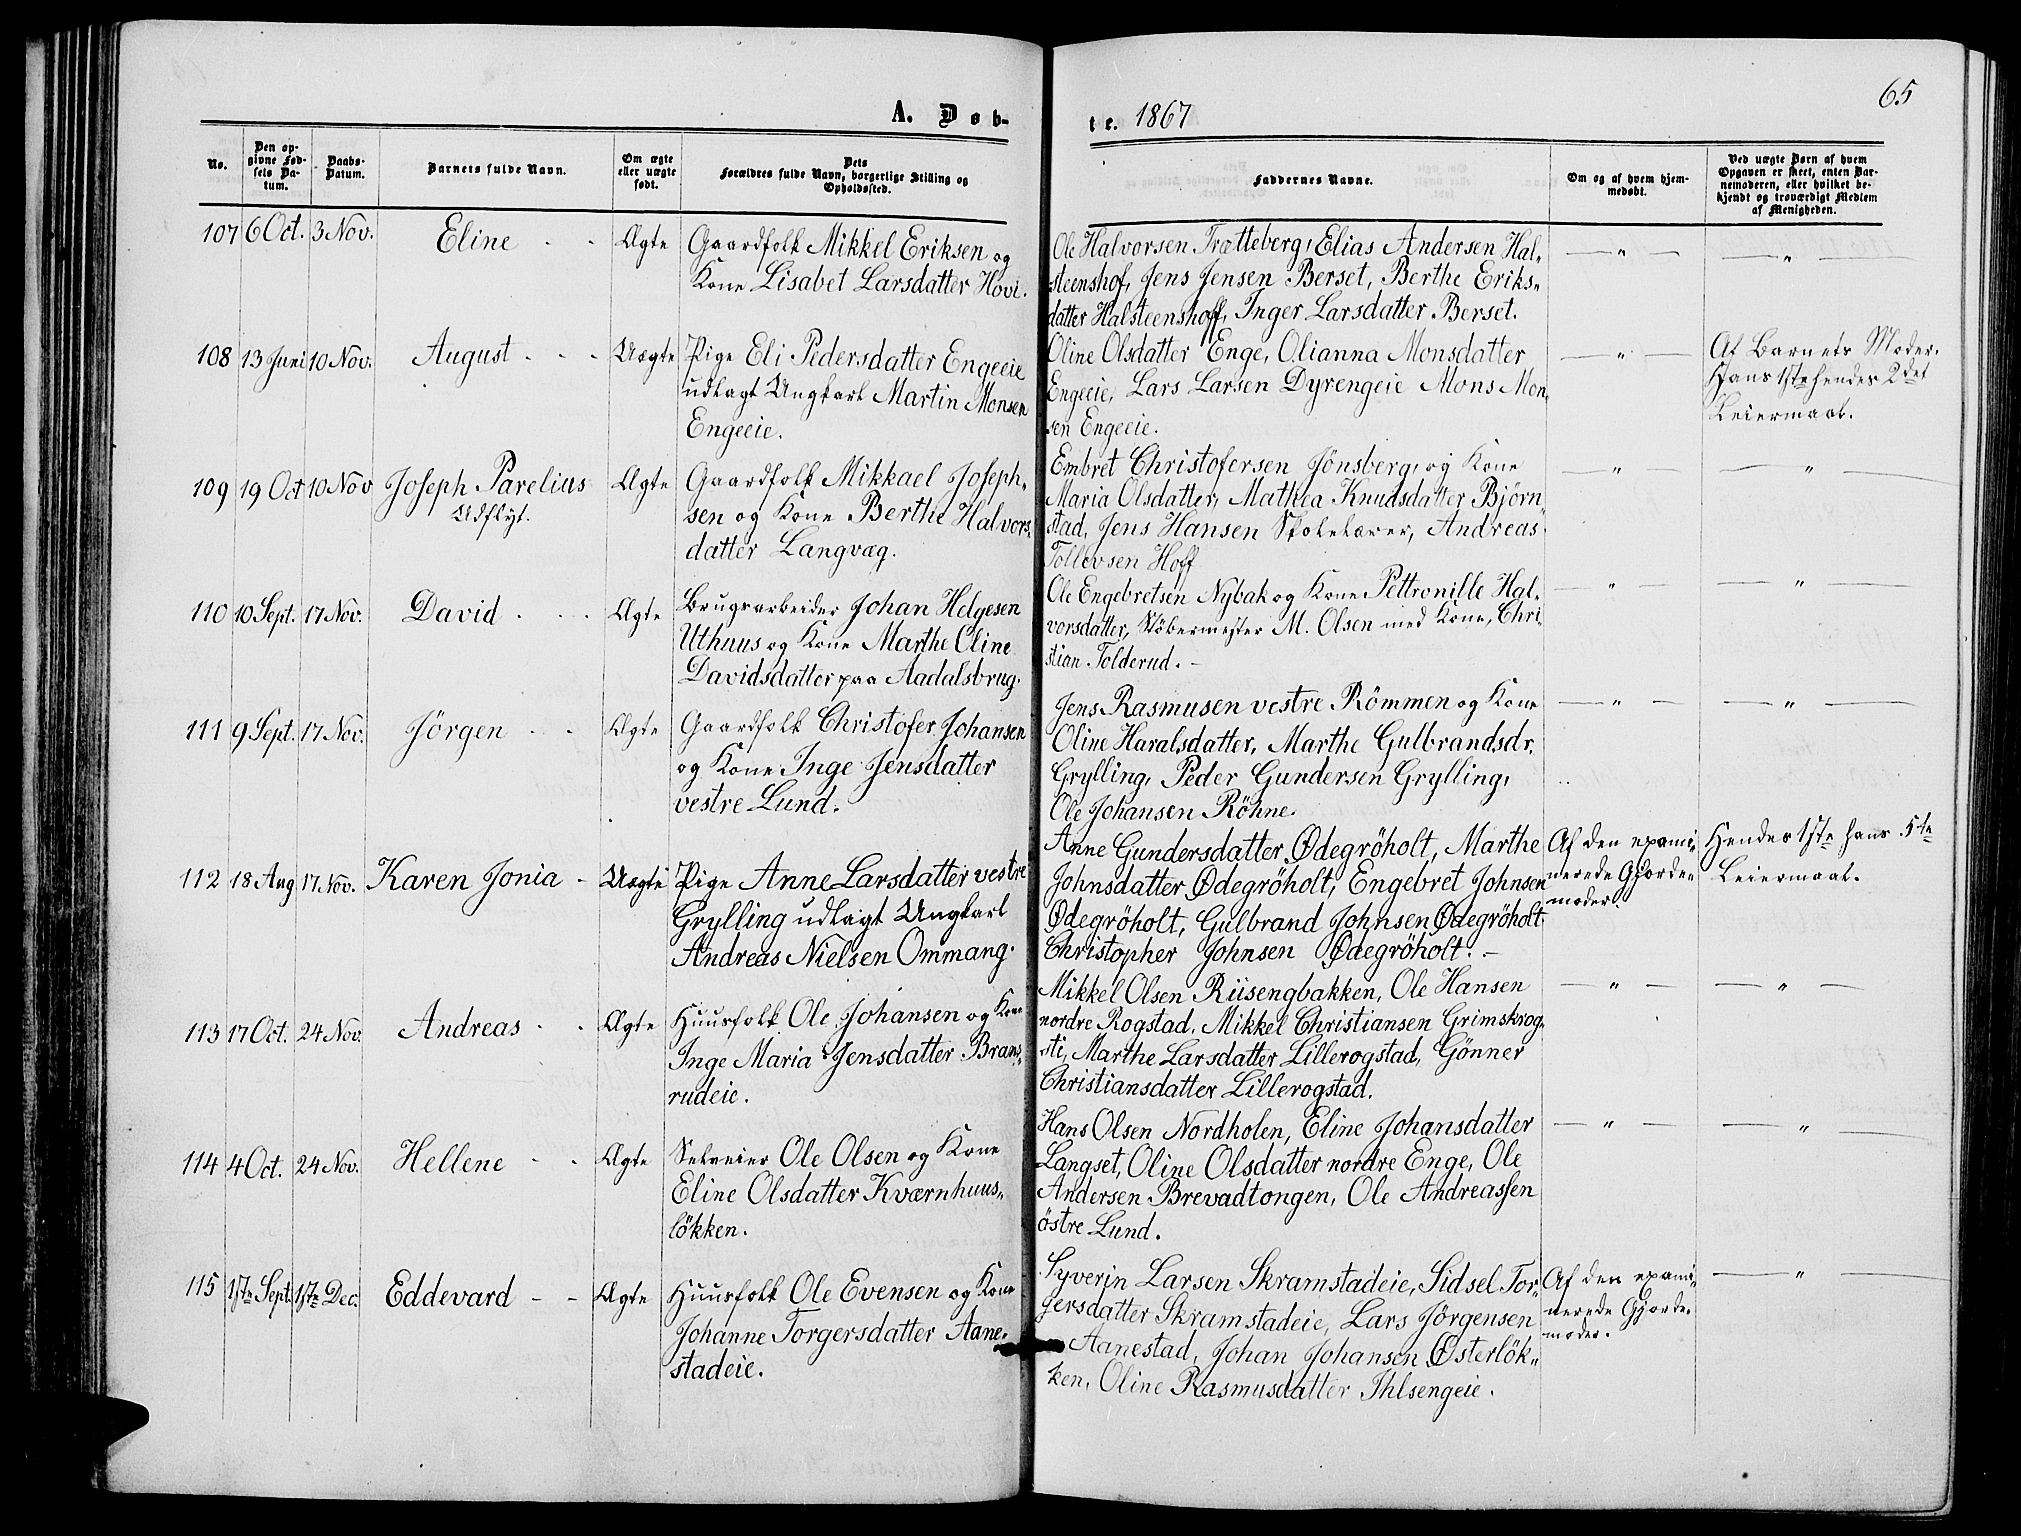 65
A. Døb-
te. 1867
No.
Den op-
givne Fød-
sels Da-
tum.
Daabs-
Datum.
Barnets fulde Navn.
Om ægte
eller uægte
født.
Dets
Forældres fulde Navn, borgerlige Stilling og
Opholdssted.
Faddernes Navne.
Om og af hvem hjem-
medøbt.
Ved uægte Børn af hvem
Opgaven er skeet, enten Bar-
nemoderen, eller hvilket be-
kjendt og troværdigt Medlem
af Menigheden.
107 6 Oct. 3 Nov. Eline - - Ægte
Gaardfolk Mikkel Eriksen og
Kone Lisabet Larsdatter Hovi.
Ole Halvorsen Trætteberg, Elias Andersen Hal-
steenshof, Jens Jensen Berset, Berthe Eriks-
datter Halsteenshoff, Inger Larsdatter Berset.
— " — — " —
108 13 Juni 10 Nov. August - - - Uægte
Pige Eli Pedersdatter Engeeie
udlagt Ungkarl Martin Monsen
Engeeie.
Oline Olsdatter Enge, Olianna Monsdatter
Engeeie, Lars Larsen Dyrengeie Mons Mon-
sen Engeeie.
— " —
Af Barnets Moder.
Hans 1ste hendes 2det
Leiermaal.
109 19 Oct 10 Nov Joseph Parelius Ægte
Udflyt.
Gaardfolk Mikkael Joseph-
sen og Kone Berthe Halvors-
datter Langvæg.
Embret Christofersen Jönsberg, og Kone
Maria Olsdatter, Mathea Knudsdatter Björn-
stad, Jens Hansen Skolelærer, Andreas
Tollevsen Hoff
— " — — " —
110 10 Sept. 17 Nov. David - - - Ægte
Brugsarbeider Johan Helgesen
Uthuus og Kone Marthe Oline
Davidsdatter paa Aadalsbrug.
Ole Engebretsen Nybak og Kone Pettronille Hal-
vorsdatter, Støbermester M. Olsen med Kone, Chri-
stian Tolderud. -
— " — — " —
111 9 Sept. 17 Nov. Jörgen - - Ægte
Gaardfolk Christofer Johansen
og Kone Inge Jensdatter
vestre Lund.
Jens Rasmusen vestre Römmen og Kone
Oline Haralsdatter, Marthe Gulbrandsdr.
Grylling, Peder Gundersen Grylling,
Ole Johansen Röhne.
— " — — " —
112 18 Aug 17 Nov. Karen Jonia - Uægte
Pige Anne Larsdatter vestre
Grylling udlagt Ungkarl
Andreas Nielsen Ommang.
Anne Gundersdatter Ødegröholt, Marthe
Johnsdatter Ødegröholt, Engebret Johnsen
Ødegröholt, Gulbrand Johnsen Ødegröholt
Christopher Johnsen Ødegröholt. -
Af den exami-
nerede Gjorde-
moder.
Hendes 1ste hans 5te
Leiermaal.
113 17 Oct. 24 Nov. Andreas - - Ægte
Huusfolk Ole Johansen og Kone
Inge Maria Jensdatter Brans-
rudeie.
Mikkel Olsen Riisengbakken, Ole Hansen
nordre Rogstad, Mikkel Christiansen Grimskrog-
sti, Marthe Larsdatter Lillerogstad, Gönner
Christiansdatter Lillerogstad.
— " — — " —
114 4 Oct. 24 Nov. Hellene - - Ægte
Selveier Ole Olsen og Kone
Eline Olsdatter Kværnhuus-
lökken.
Hans Olsen Nordholen, Eline Johansdatter
Langset, Oline Olsdatter nordre Enge, Ole
Andersen Brevadtongen, Ole Andreassen
östre Lund.
— " — — " —
115 1ste Sept. 1ste Dec. Eddevard - - Ægte
Huusfolk Ole Evensen og Kone
Johanne Torgersdatter Aane-
stadeie.
Syverin Larsen Skramstadeie, Sidsel Tor-
gersdatter Skramstadeie, Lars Jörgensen
Aanestad, Johan Johansen Østerlök-
ken, Oline Rasmusdatter Ihlsengeie.
Af den exami-
nerede Gjorde-
moder.
— " —